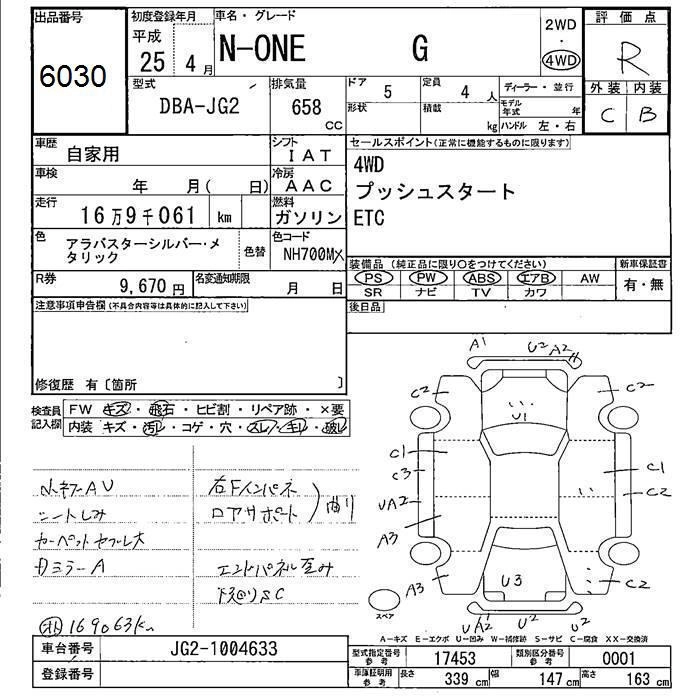 出品番号
6030
初度登録年月
平成
25 4 月
車名・グレード
N-ONE G
2WD
・
4WD
評価点
R
外装 内装
C B
型式
DBA-JG2
排気量
658
CC
ドア
5
定員
4 人
形状
積載
kg
ディーラー・並行
モデル年式 年
ハンドル 左・右
車歴
自家用
シフト
IAT
車検
年 月( 日)
冷房
AAC
走行
16万9千061 km
燃料
ガソリン
色
アラバスターシルバー・メ
タリック
色替
色コード
NH700MX
R券
9,670 円
名変通知期限
月 日
セールスポイント(正常に機能するものに限ります)
4WD
プッシュスタート
ETC
装備品(純正品に限り○をつけてください)
PS PW ABS エアB AW
SR ナビ TV カワ
新車保証書
有・無
後日品
注意事項申告欄(不具合内容等は具体的に記入して下さい)
修復歴 有〔箇所 〕
検査員
記入欄
FW キズ・飛石・ヒビ割・リペア跡・×要
内装 キズ・汚レ・コゲ・穴・スレ・キレ・破レ
シートしみ
カーペット
ミラーA
右Fインパネ
ロアサポート
曲り
エンドパネル歪み
下廻りSC
169063km
A1 U2 A2
C2 C2
U1
C1 C1
C3 C2
UA2
A3
A3 U3 C2
UA2 U2 U2
スペア
A-キズ E-エクボ U-凹み W-補修跡 S-サビ C-腐食 XX-交換済
車台番号
JG2-1004633
登録番号
型式指定番号
参考
17453
類別区分番号
参考
0001
車庫証明用
参考
長さ 339 cm 幅 147 cm 高さ 163 cm